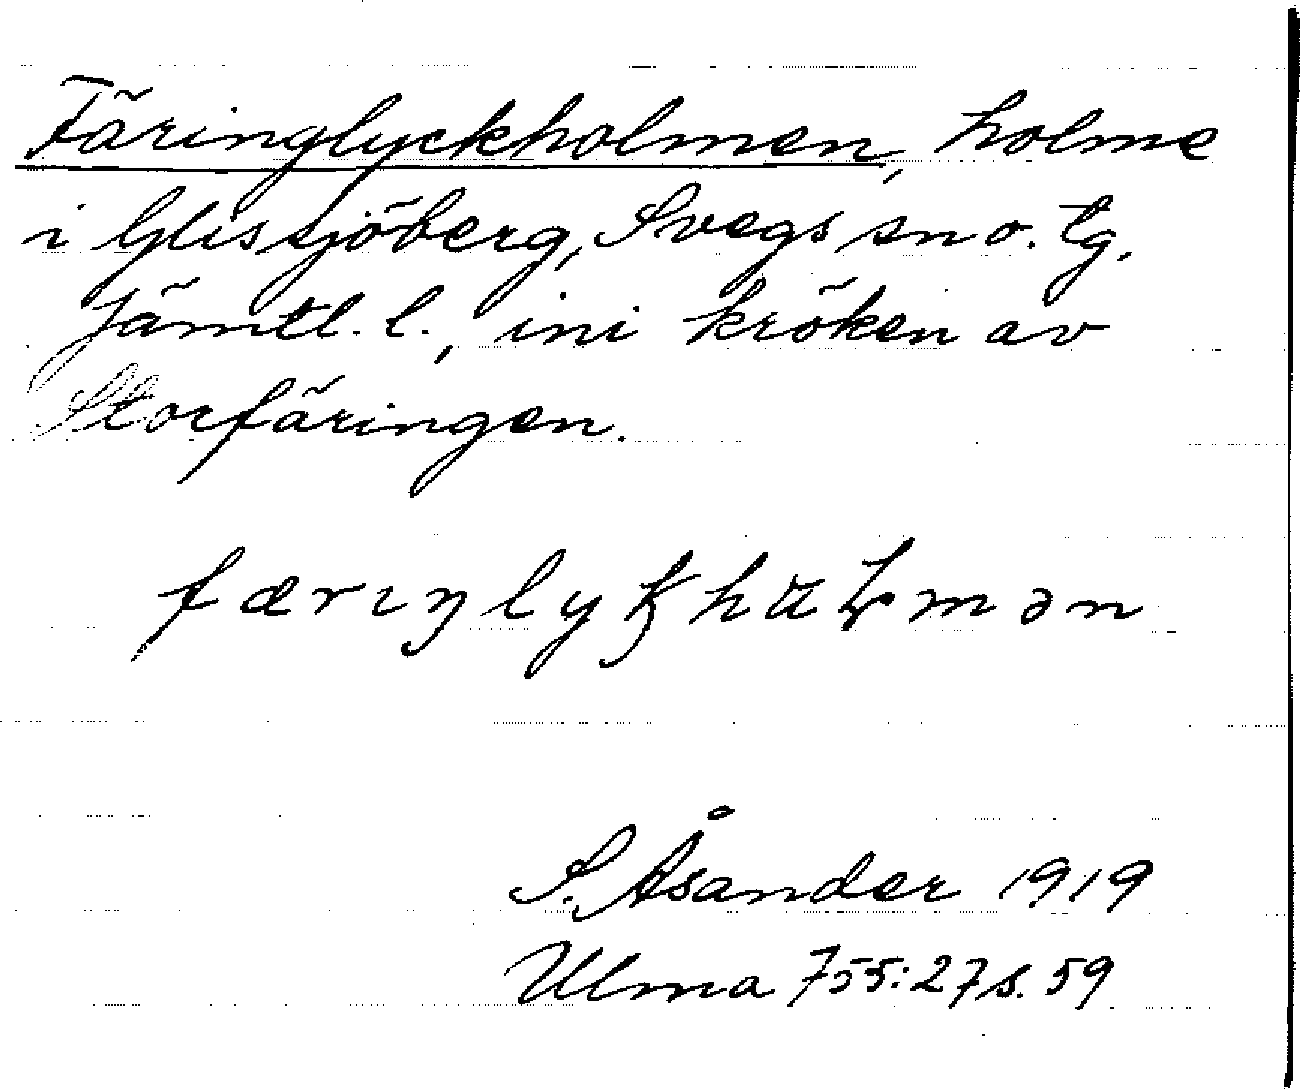 Färinglyckholmen, holme
i Glissjöberg, Svegs sn o. tg,
Jämtl. l., ini kröken av
Storfäringen.
S. Åsander 1919
Ulma 755:27 s. 59